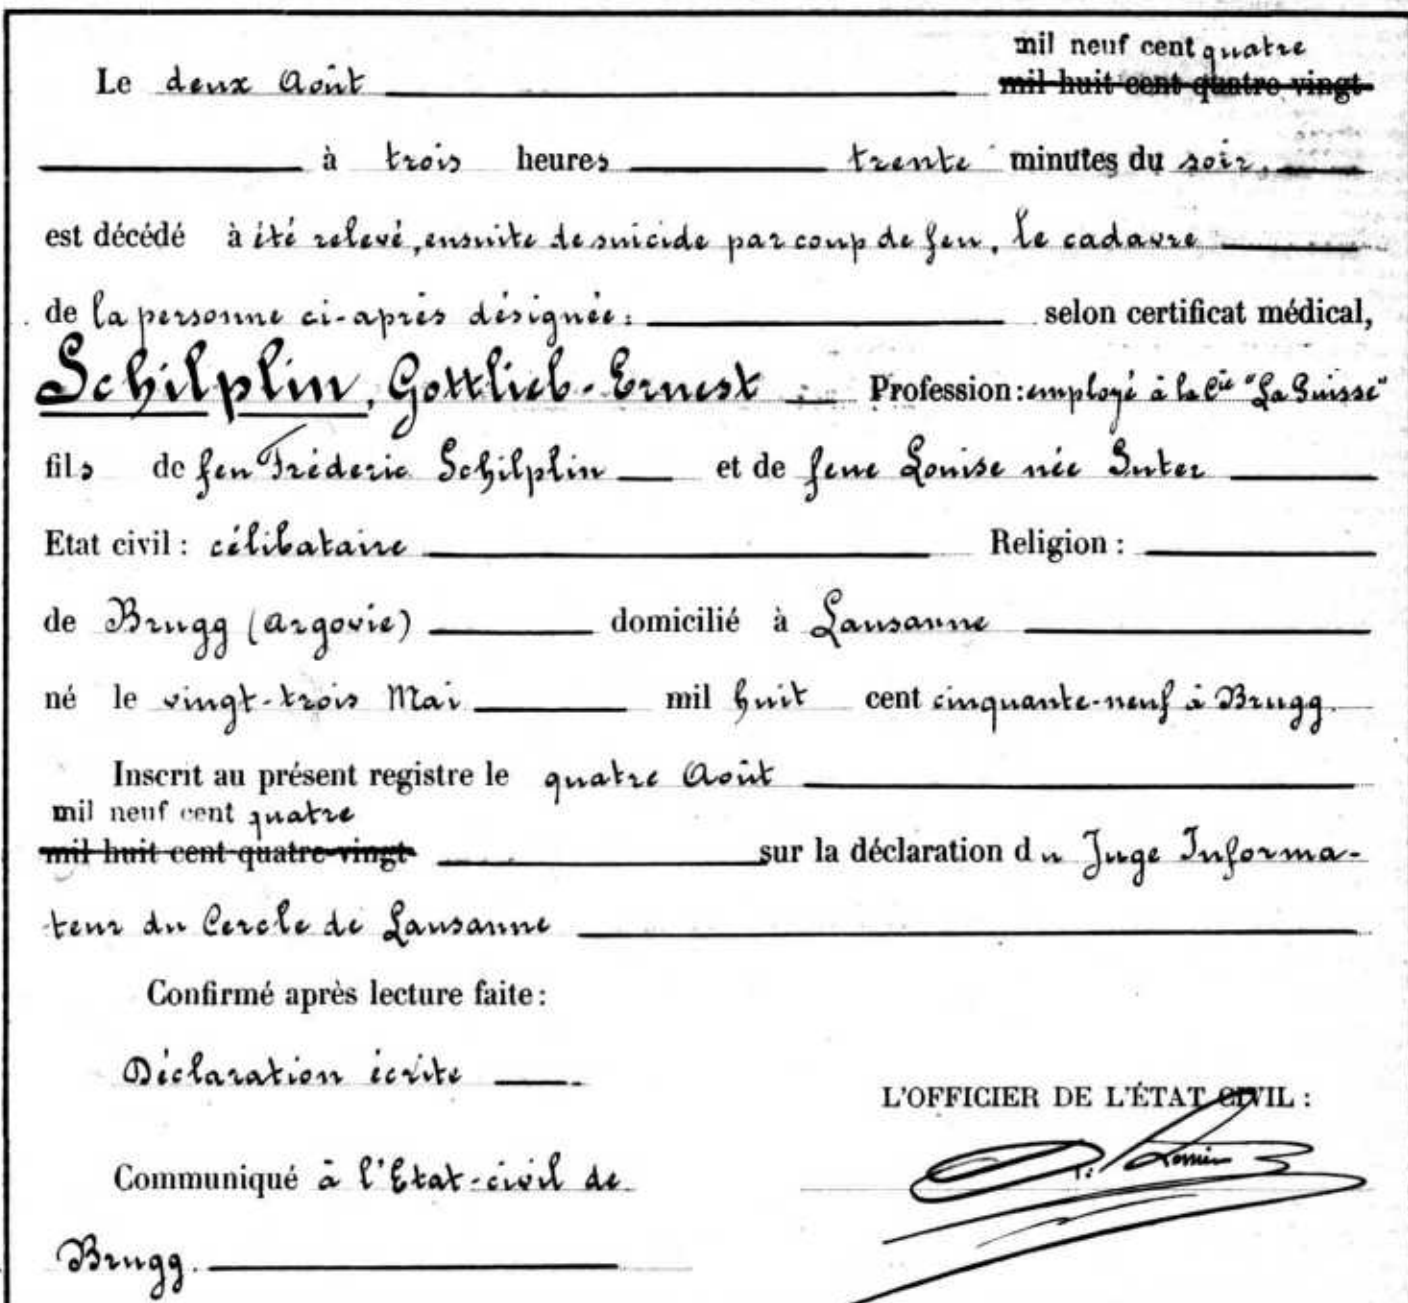 mil neuf cent quatre
Le deux Août mil huit cent quatre-vingt
à trois heures trente minutes du soir,
est décédé à été relevé, ensuite de suicide par coup de feu, le cadavre
de la personne ci-après désignée: selon certificat médical,
Schilplin, Gottlieb-Ernest Profession: employé à la Cie "La Suisse"
fils de feu Fréderic Schilplin et de feue Louise née Suter
Etat civil: célibataire Religion:
de Brugg (Argovie) domicilié à Lausanne
né le vingt-trois Mai mil huit cent cinquante-neuf à Brugg.
Inscrit au présent registre le quatre Août
mil neuf cent quatre
mil huit cent quatre-vingt sur la déclaration du Juge Informa-
teur du Cercle de Lausanne
Confirmé après lecture faite:
Déclaration écrite
L'OFFICIER DE L'ÉTAT CIVIL:
Communiqué à l'Etat-civil de
Brugg.